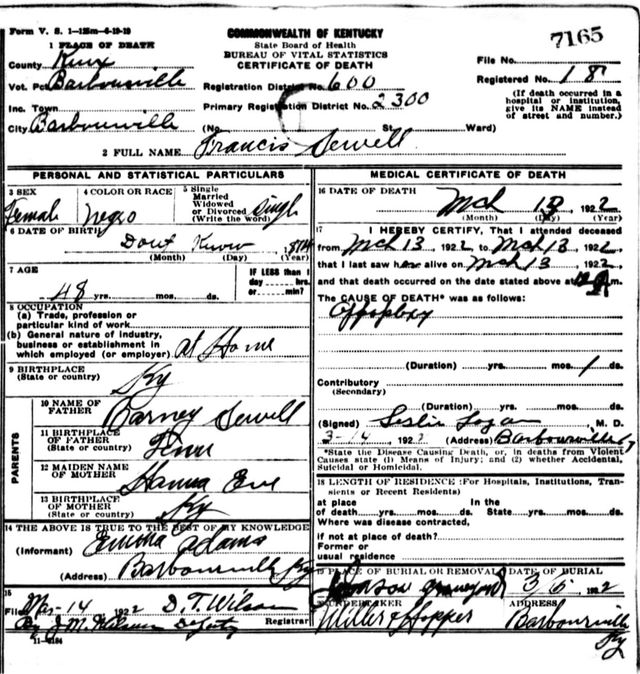 Form V. S. 1-125m-6-19-19
COMMONWEALTH OF KENTUCKY
State Board of Health
BUREAU OF VITAL STATISTICS
CERTIFICATE OF DEATH
7165
1 PLACE OF DEATH
County Knox
Vot. Pct. Barbourville
Inc. Town
City Barbourville
Registration District No. 600
Primary Registration District No. 2300
File No.
Registered No. 18
(If death occurred in a hospital or institution, give its NAME instead of street and number.)
(No. St. Ward)
2 FULL NAME Francis Sewell
PERSONAL AND STATISTICAL PARTICULARS
3 SEX
Female
4 COLOR OR RACE
negro
5 Single
Married
Widowed
or Divorced
(Write the word) Single
6 DATE OF BIRTH
Dont Know, 1874
(Month) (Day) (Year)
7 AGE
48 yrs. mos. ds.
IF LESS than 1
day hrs.
or min.?
8 OCCUPATION
(a) Trade, profession or
particular kind of work
(b) General nature of industry,
business or establishment in
which employed (or employer) at Home
9 BIRTHPLACE
(State or country)
Ky
PARENTS
10 NAME OF
FATHER
Barney Sewell
11 BIRTHPLACE
OF FATHER
(State or country) Tenn
12 MAIDEN NAME
OF MOTHER
Hanna Eve
13 BIRTHPLACE
OF MOTHER
(State or country) Ky
14 THE ABOVE IS TRUE TO THE BEST OF MY KNOWLEDGE
(Informant) Emma Adams
(Address) Barbourville Ky
15
Filed Mar-14 1922 D. T. Wilson
Registrar
By J. M. Wilson Deputy
11-3184
MEDICAL CERTIFICATE OF DEATH
16 DATE OF DEATH
Mch 13, 1922
(Month) (Day) (Year)
17 I HEREBY CERTIFY, That I attended deceased
from Mch 13, 1922, to Mch 13, 1922,
that I last saw her alive on Mch 13, 1922,
and that death occurred on the date stated above at m.
The CAUSE OF DEATH* was as follows:
Appoplexy
(Duration) yrs. mos. 1 ds.
Contributory
(Secondary)
(Duration) yrs. mos. ds.
(Signed) Leslie Logan, M. D.
3-14, 1922 (Address) Barbourville Ky
*State the Disease Causing Death, or, in deaths from Violent
Causes state (1) Means of Injury; and (2) whether Accidental,
Suicidal or Homicidal.
18 LENGTH OF RESIDENCE (For Hospitals, Institutions, Tran-
sients or Recent Residents)
At place In the
of death yrs. mos. ds. State yrs. mos. ds.
Where was disease contracted,
if not at place of death?
Former or
usual residence
19 PLACE OF BURIAL OR REMOVAL DATE OF BURIAL
graveyard 1922
UNDERTAKER ADDRESS
Miller & Hopper Barbourville
Ky